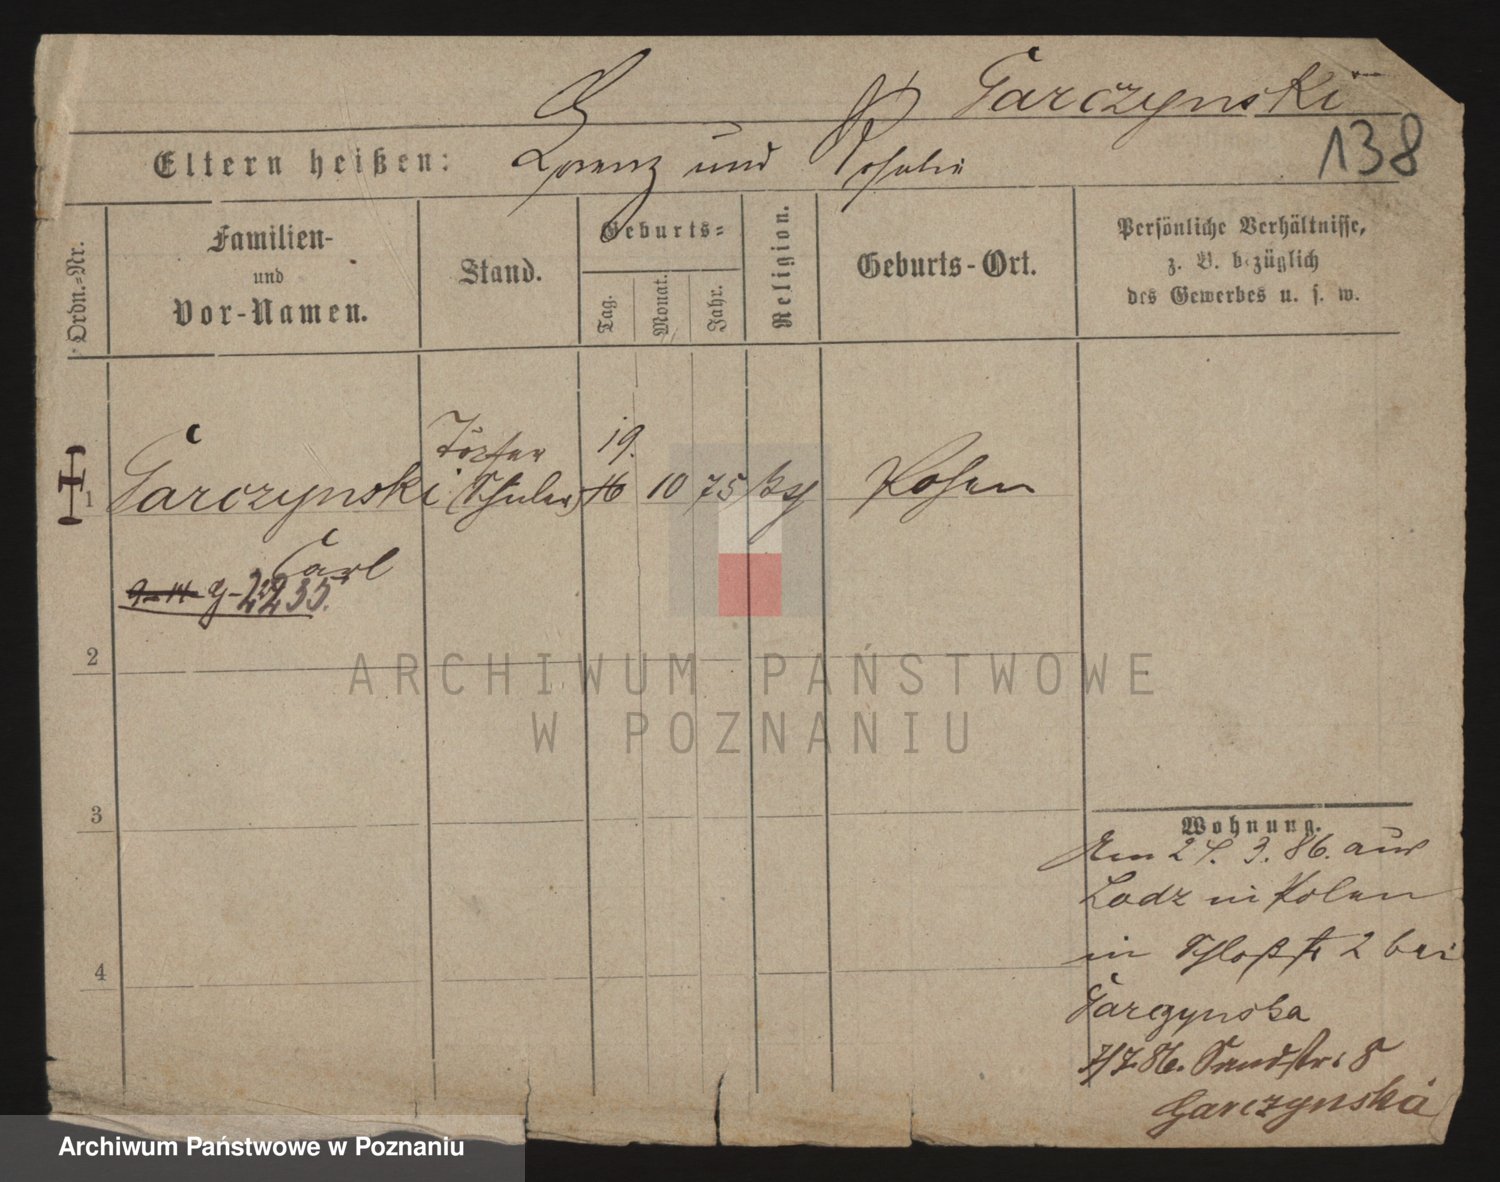 Garczynski
138
Eltern heißen: Lorenz und Rosalie
Ordn.-Nr.
Familien-
und
Vor-Namen.
Stand.
Geburts-
Tag.
Monat.
Jahr.
Religion.
Geburts-Ort.
Persönliche Verhältnisse,
z. B. bezüglich
des Gewerbes u. s. w.
Töpfer 19.
1 Garczynski (Schüler) 16 10 75 Posen
Carl
2235.
2
3
4
Wohnung.
Am 24. 3. 86. aus
Lodz in Polen
in Schloßstr 2 bei
Garczynska
7/7. 86. Sandstr. 8
Garczynska
ARCHIWUM PAŃSTWOWE
W POZNANIU
Archiwum Państwowe w Poznaniu